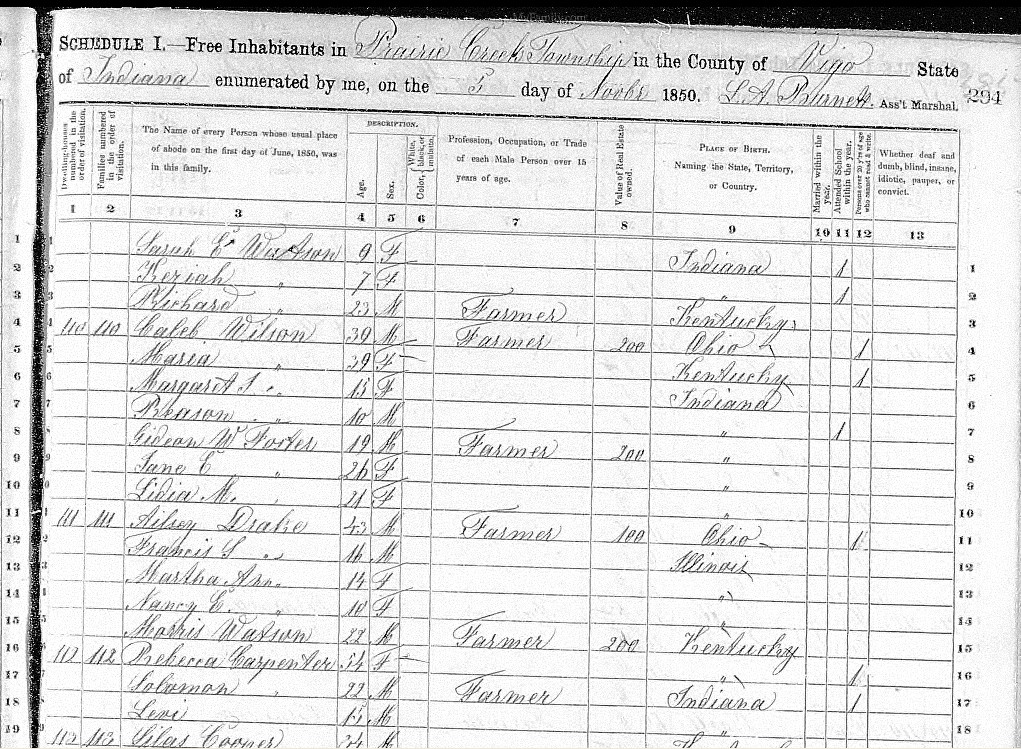 SCHEDULE I.—Free Inhabitants in Prairie Creek Township in the County of Vigo State
of Indiana enumerated by me, on the 5 day of Novbr 1850. L. A. Burnett. Ass't Marshal. 294
Dwelling-houses numbered in the order of visitation.
Families numbered in the order of visitation.
The Name of every Person whose usual place of abode on the first day of June, 1850, was in this family.
DESCRIPTION.
Age.
Sex.
Color, White, black, or mulatto.
Profession, Occupation, or Trade of each Male Person over 15 years of age.
Value of Real Estate owned.
PLACE OF BIRTH. Naming the State, Territory, or Country.
Married within the year.
Attended School within the year.
Persons over 20 y'rs of age who cannot read & write.
Whether deaf and dumb, blind, insane, idiotic, pauper, or convict.
1 2 3 4 5 6 7 8 9 10 11 12 13
1 Sarah E. Watson 9 F Indiana 1 1
2 Keziah " 7 F " 1 2
3 Richard " 23 M Farmer Kentucky 3
4 110 110 Caleb Wilson 39 M Farmer 200 Ohio 1 4
5 Maria " 39 F Kentucky 1 5
6 Margaret S. " 15 F Indiana 6
7 Reason " 10 M " 1 7
8 Gideon W 19 M Farmer 200 " 8
9 Jane E " 26 F " 9
10 Lidia M. " 21 F " 10
11 111 111 Drake 43 M Farmer 100 Ohio 1 11
12 Francis S " 16 M Illinois 12
13 Martha Ann " 14 F " 13
14 Nancy E. " 10 F " 14
15 Morris Watson 22 M Farmer 200 Kentucky 15
16 112 112 Rebecca Carpenter 54 F " 1 16
17 Solomon " 22 M Farmer Indiana 1 17
18 Levi 15 M " 18
19 113 113 Silas Cooper 34 M